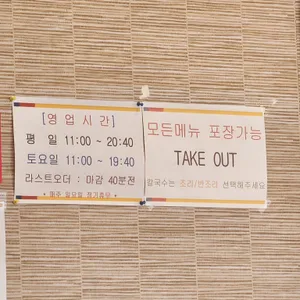 [영업시간]
평 일 11:00 ~ 20:40
토요일 11:00 ~ 19:40
라스트오더 : 마감 40분전
* 매주 일요일 정기휴무 *
모든메뉴 포장가능
TAKE OUT
칼국수는 조리/반조리 선택해주세요